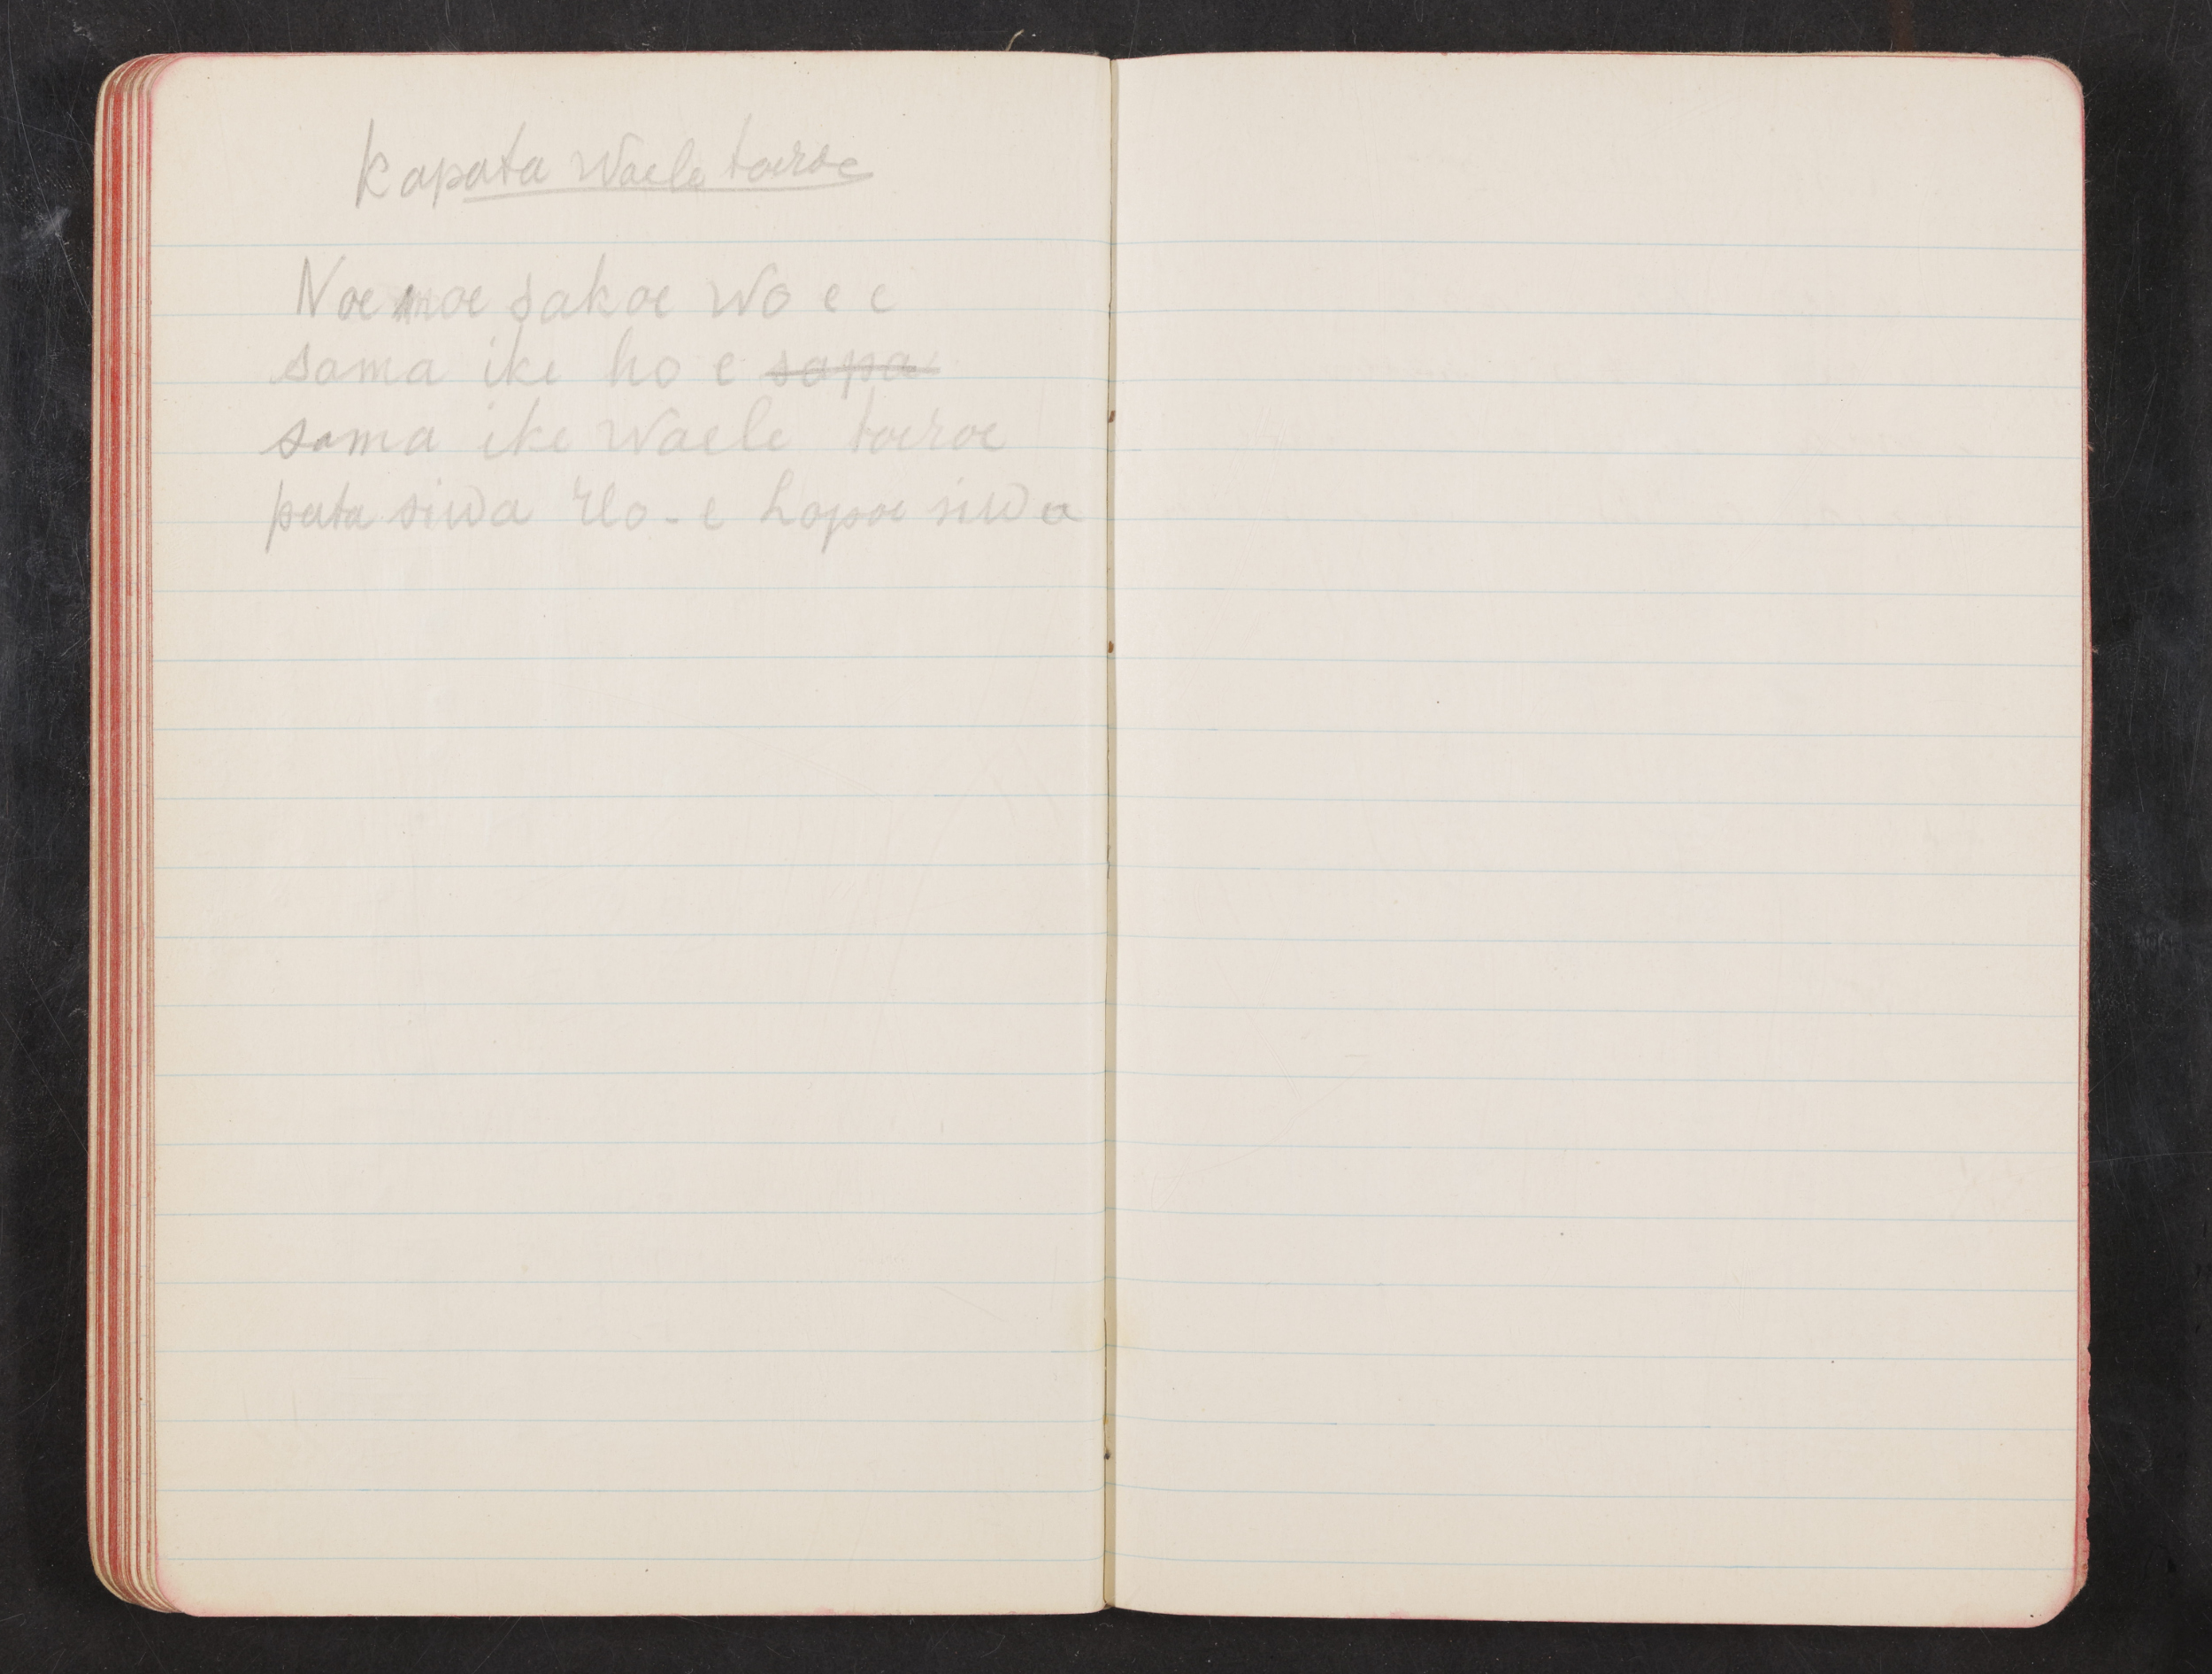 Kapata Waele toeroe
Noemoe sakoe wo e e
sama ike ho e sapa
sama ike Waele toeroe
pata siwa rlo - e Lopoe siwa